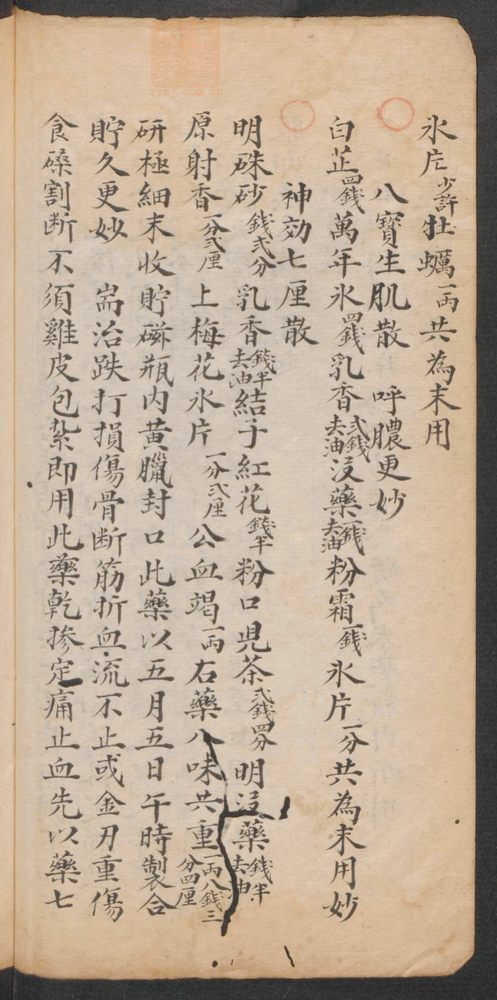 氷片少許牡蠣一両共為末用
八寳生肌散　呼膿更妙
白芷四錢萬年氷四錢乳香弍錢去油沒藥一錢去油粉霜一錢氷片一分共為末用妙
神効七厘散
明硃砂錢弍分乳香錢半去油結子紅花錢半粉口児茶弍錢四分明沒藥錢半去油
原射香一分弍厘上梅花氷片一分弍厘公血竭一両右藥八味共重一両八錢三分四厘
研極細末收貯磁瓶内黄臘封口此藥以五月五日午時製合
貯久更妙　耑治跌打損傷骨断筋折血流不止或金刃重傷
食嗓割断不須雞皮包紮即用此藥乾摻定痛止血先以藥七